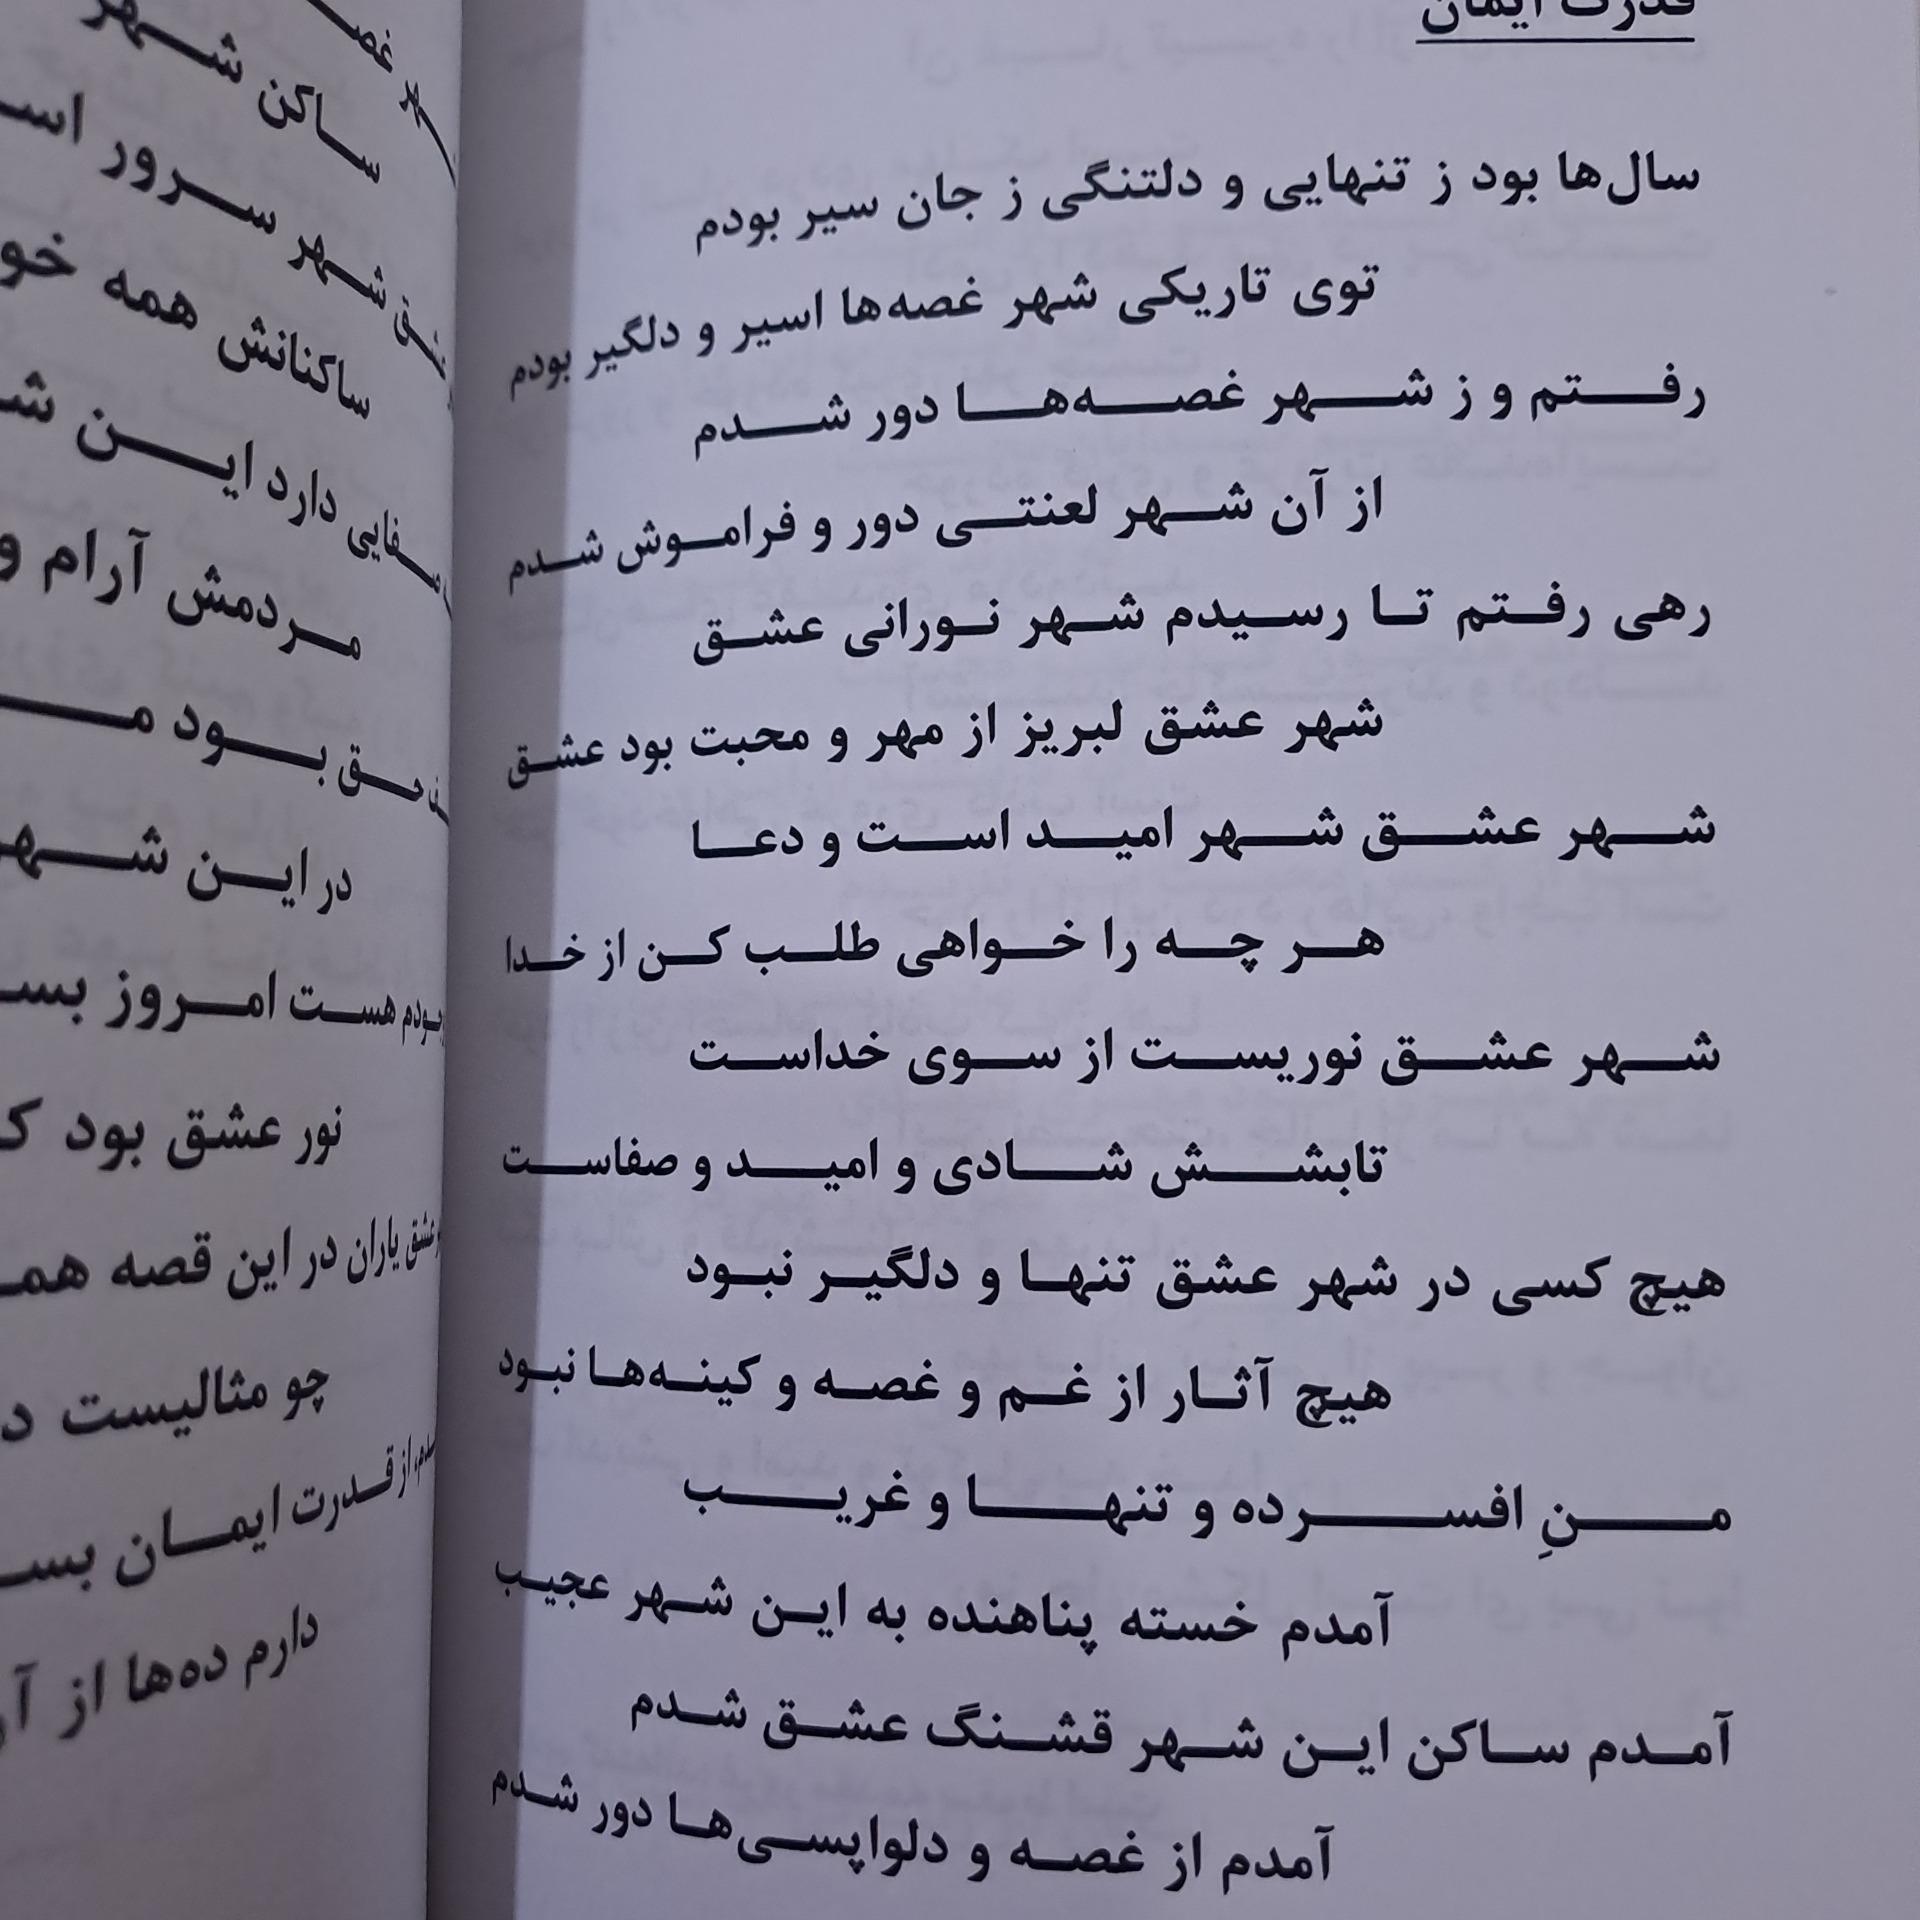 قدرت ایمان
سال‌ها بود ز تنهایی و دلتنگی ز جان سیر بودم
توی تاریکی شهر غصه‌ها اسیر و دلگیر بودم
رفتم و ز شهر غصه‌ها دور شدم
از آن شهر لعنتی دور و فراموش شدم
رهی رفتم تا رسیدم شهر نورانی عشق
شهر عشق لبریز از مهر و محبت بود عشق
شهر عشق شهر امید است و دعا
هر چه را خواهی طلب کن از خدا
شهر عشق نوریست از سوی خداست
تابشش شادی و امید و صفاست
هیچ کسی در شهر عشق تنها و دلگیر نبود
هیچ آثار از غم و غصه و کینه‌ها نبود
منِ افسرده و تنها و غریب
آمدم خسته پناهنده به این شهر عجیب
آمدم ساکن این شهر قشنگ عشق شدم
آمدم از غصه و دلواپسی‌ها دور شدم
ساکن شهر
شهر سرور
ساکنانش همه
دارد این
مردمش آرام و
حق بود
در این شهر
هست امروز
نور عشق بود
عشق یاران در این قصه
چو مثالیست
از قدرت ایمان
دارم ده‌ها از